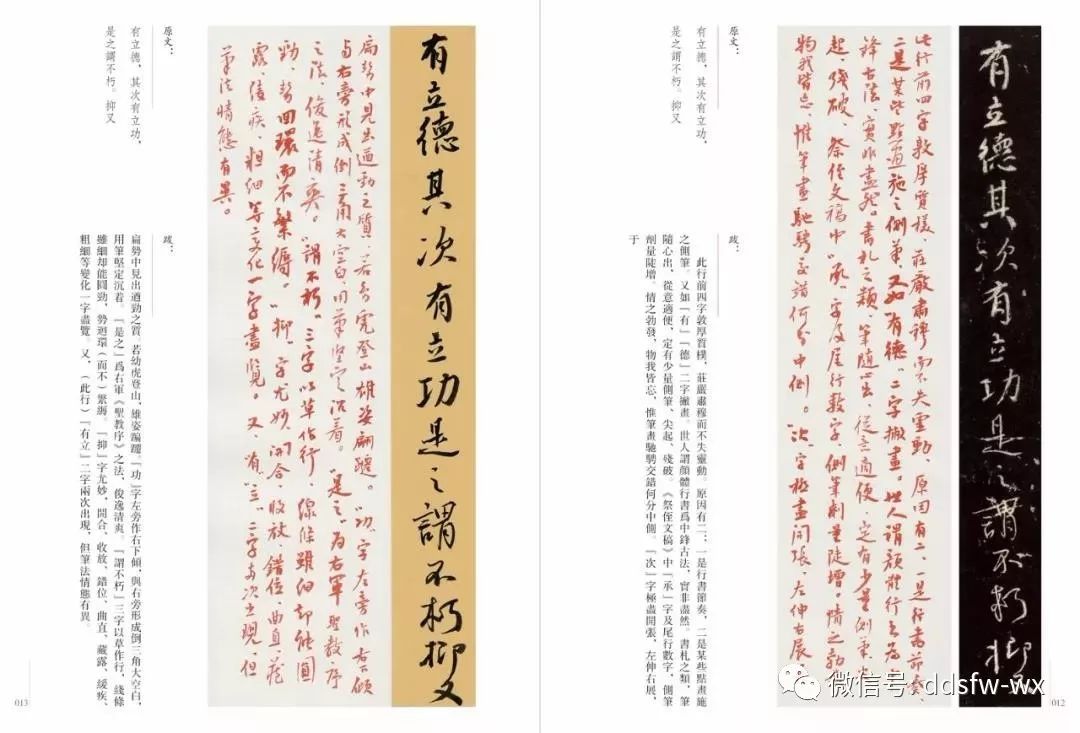 有立德其次有立功是之謂不朽抑又
此行前四字敦厚質樸、莊嚴肅穆而不失靈動、原因有二、一是行書節奏、
二是某些點畫施之側筆、又如"有德"二字撇畫。世人謂顏體行書為中
鋒古法、實非盡然。書札之類、筆隨心出、從意適便、定有少量側筆、尖
起、殘破、祭侄文稿中"承"字及尾行數字、側筆劑量陡增。情之勃發
物我皆忘、惟筆畫馳騁交錯何分中側。"次"字極盡開張、左伸右展
原文:
有立德,其次有立功,
是之謂不朽。抑又
跋:
此行前四字敦厚質樸,莊嚴肅穆而不失靈動。原因有二:一是行書節奏,二是某些點畫施
之側筆。又如「有」「德」二字撇畫。世人謂顏體行書爲中鋒古法,實非盡然。書札之類,筆
隨心出,從意適便,定有少量側筆、尖起、殘破。《祭侄文稿》中「承」字及尾行數字,側筆
劑量陡增。情之勃發,物我皆忘,惟筆畫馳騁交錯何分中側。「次」字極盡開張,左伸右展,
于
微信号: ddsfw-wx
012
有立德其次有立功是之謂不朽抑又
扁勢中見出遒勁之質、若幼虎登山雄姿翩躚。"功"字左旁作右下傾
與右旁形成倒三角大空白、用筆堅定沉着。"是之"為右軍聖教序
之法、俊逸清爽。"謂不朽"三字以草作行、線條雖細却能圓
勁、勢回環而不繁縟。"抑"字尤妙、開合、收放、錯位、曲直、藏
露、緩疾、粗細等變化一字盡覽。又、"有""立"二字兩次出現、但
筆法情態有異。
原文:
有立德,其次有立功,
是之謂不朽。抑又
跋:
扁勢中見出遒勁之質,若幼虎登山,雄姿翩躚。「功」字左旁作右下傾,與右旁形成倒三角大空白,
用筆堅定沉着。「是之」爲右軍《聖教序》之法,俊逸清爽。「謂不朽」三字以草作行,綫條
雖細却能圓勁,勢迴環(而不)繁縟。「抑」字尤妙,開合、收放、錯位、曲直、藏露、緩疾、
粗細等變化一字盡覽。又,(此行)「有立」二字兩次出現,但筆法情態有異。
013